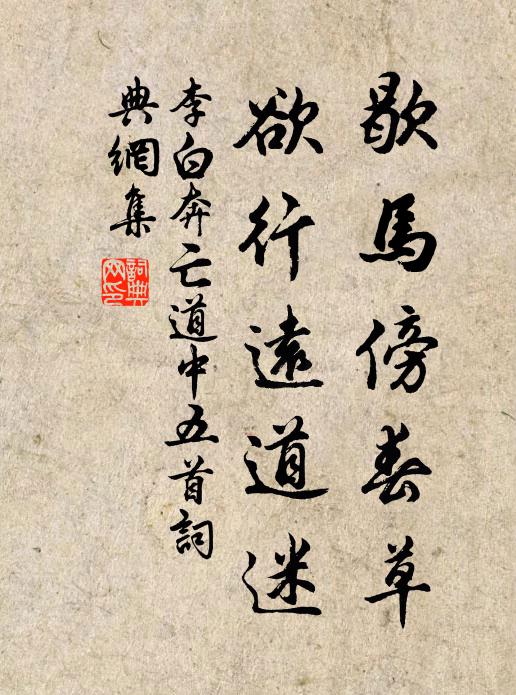 歇馬傍春草
欲行遠道迷
李白奔亡道中五首詞
典網集
詞典網印